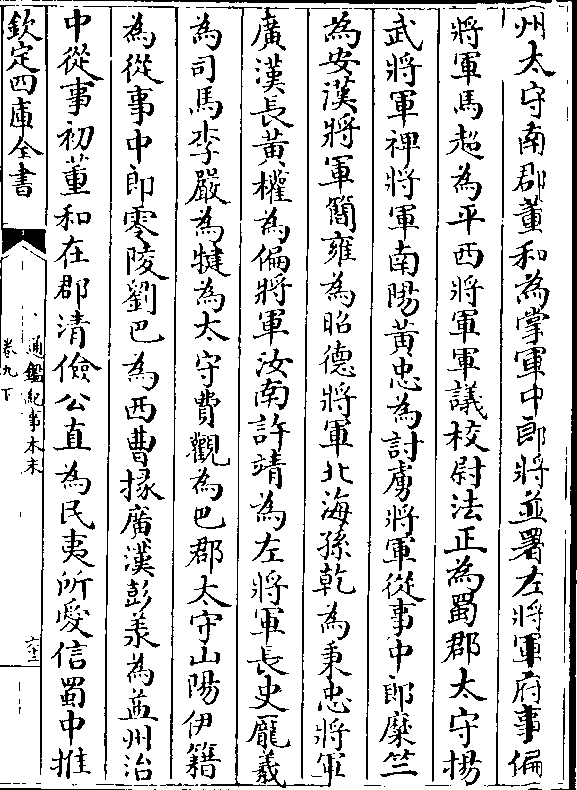 州太守南郡董和為掌軍中郎將並署左將軍府事偏
將軍馬超為平西將軍軍議校尉法正為蜀郡太守揚
武將軍裨將軍南陽黃忠為討虜將軍從事中郎糜竺
為安漢將軍簡雍為昭德將軍北海孫乾為秉忠將軍
廣漢長黃權為偏將軍汝南許靖為左將軍長史龐羲
為司馬李嚴為犍為太守費觀為巴郡太守山陽伊籍
為從事中郎零陵劉巴為西曹掾廣漢彭羕為益州治
中從事初董和在郡清儉公直為民夷所愛信蜀中推
欽定四庫全書
通鑑紀事本末
卷九下
六十二